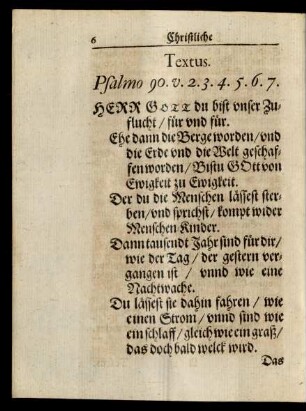 6 Christliche
Textus.
Psalmo 90. v. 2. 3. 4. 5. 6. 7.
HERR GOTT du bist vnser Zu-
flucht / für vnd für.
Ehe dann die Berge worden / vnd
die Erde vnd die Welt geschaf-
fen worden / Bistu GOtt von
Ewigkeit zu Ewigkeit.
Der du die Menschen lässest ster-
ben / vnd sprichst / kompt wider
Menschen Kinder.
Dann tausendt Jahr sind für dir /
wie der Tag / der gestern ver-
gangen ist / vnnd wie eine
Nachtwache.
Du lässest sie dahin fahren / wie
einen Strom / vnnd sind wie
ein schlaff / gleich wie ein graß /
das doch bald welck wird.
Das